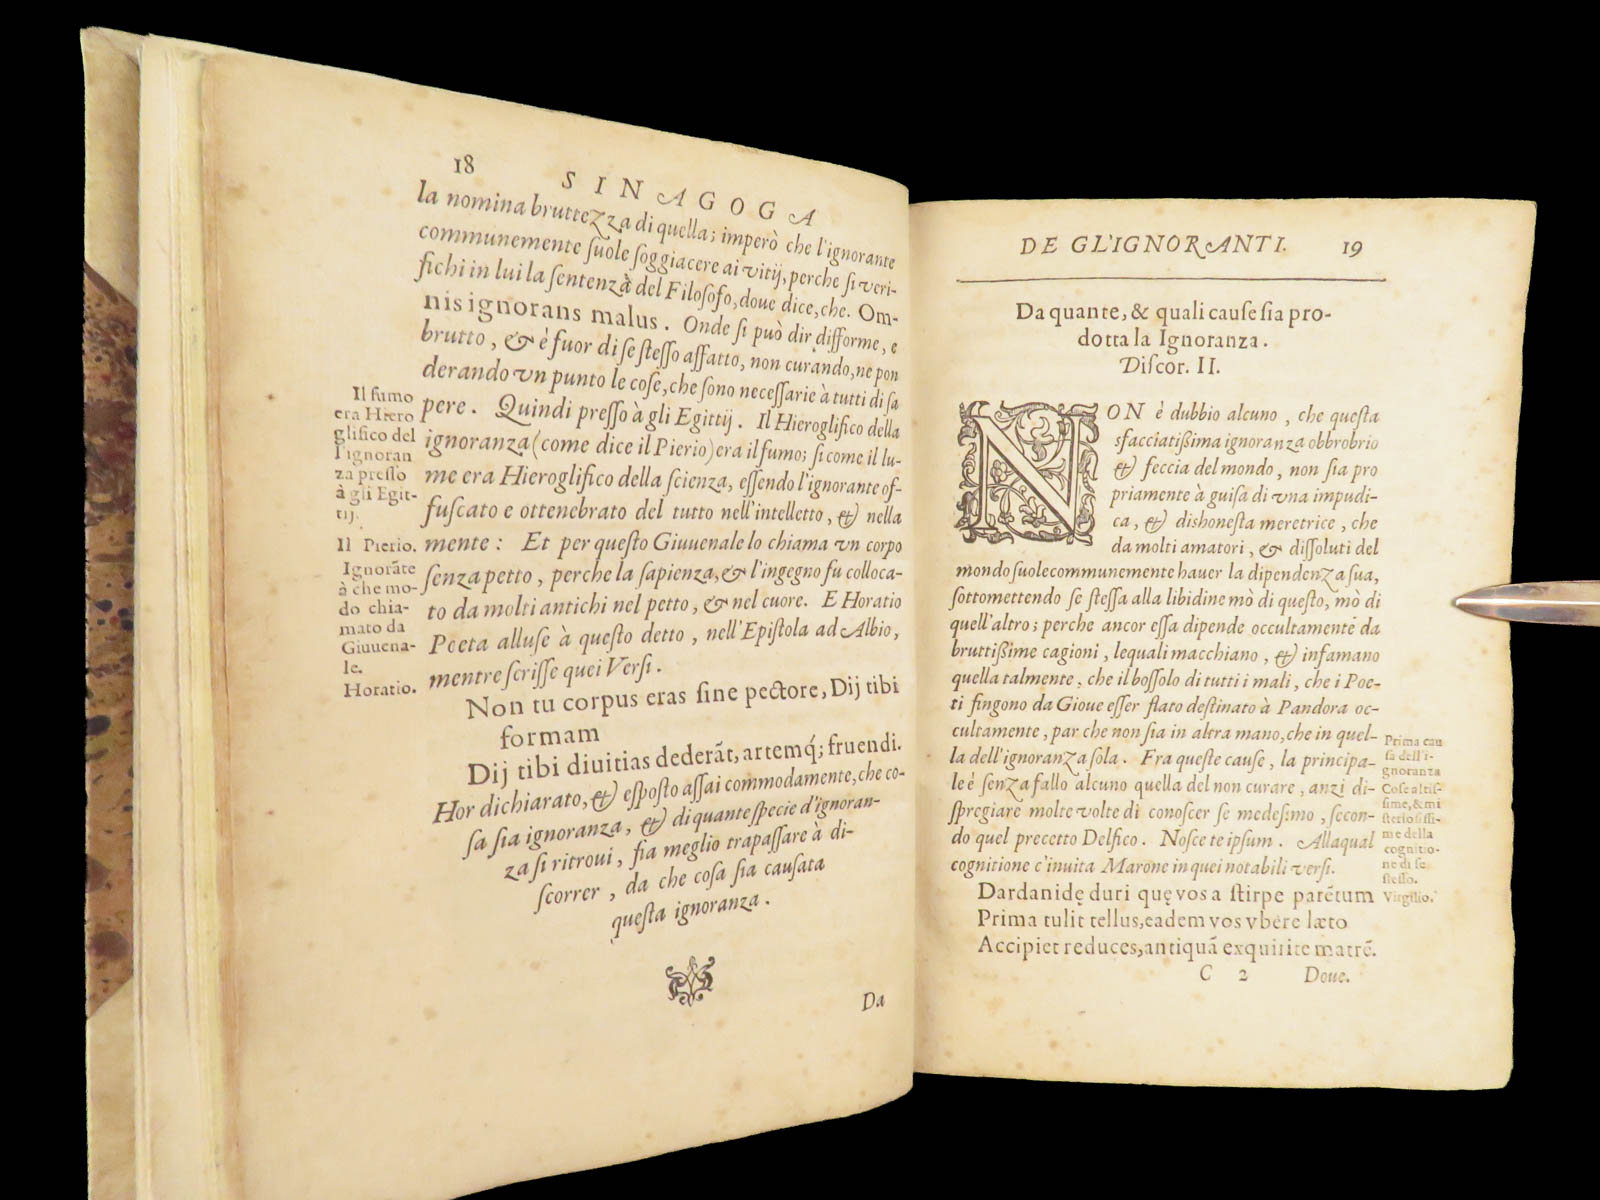 18
SINAGOGA
la nomina bruttezza di quella; imperò che l'ignorante
communemente ſuole ſoggiacere ai vitij, perche ſi veri-
fichi in lui la ſentenzà del Filoſofo, doue dice, che. Om-
nis ignorans malus. Onde ſi può dir difforme, e
brutto, & è fuor di ſe ſteſſo affatto, non curando, ne pon
derando vn punto le coſe, che ſono neceſſarie à tutti di ſa
pere. Quindi preſſo à gli Egittij. Il Hieroglifico della
ignoranza (come dice il Pierio) era il fumo; ſi come il lu-
me era Hieroglifico della ſcienza, eſſendo l'ignorante of-
fuſcato e ottenebrato del tutto nell'intelletto, & nella
mente: Et per queſto Giuuenale lo chiama vn corpo
ſenza petto, perche la ſapienza, & l'ingegno fu colloca-
to da molti antichi nel petto, & nel cuore. E Horatio
Poeta alluſe à queſto detto, nell'Epiſtola ad Albio,
mentre ſcriſſe quei Verſi.
Non tu corpus eras ſine pectore, Dij tibi
formam
Dij tibi diuitias dederãt, artemq́; fruendi.
Hor dichiarato, & eſpoſto aſſai commodamente, che co-
ſa ſia ignoranza, & di quante ſpecie d'ignoran-
za ſi ritroui, ſia meglio trapaſſare à di-
ſcorrer, da che coſa ſia cauſata
queſta ignoranza.
Da
Il fumo
era Hiero
glifico del
l'ignoran
za preſſo
à gli Egit-
tij.
Il Pierio.
Ignorãte
à che mo-
do chia-
mato da
Giuuena-
le.
Horatio.
DE GL'IGNORANTI. 19
Da quante, & quali cauſe ſia pro-
dotta la Ignoranza.
Diſcor. II.
NON è dubbio alcuno, che queſta
sfacciatißima ignoranza obbrobrio
& feccia del mondo, non ſia pro
priamente à guiſa di vna impudi-
ca, & dishoneſta meretrice, che
da molti amatori, & diſſoluti del
mondo ſuole communemente hauer la dipendenza ſua,
ſottomettendo ſe ſteſſa alla libidine mò di queſto, mò di
quell'altro; perche ancor eſſa dipende occultamente da
bruttißime cagioni, lequali macchiano, & infamano
quella talmente, che il boſſolo di tutti i mali, che i Poe-
ti fingono da Gioue eſſer ſtato deſtinato à Pandora oc-
cultamente, par che non ſia in altra mano, che in quel-
la dell'ignoranza ſola. Fra queſte cauſe, la principa-
le è ſenza fallo alcuno quella del non curare, anzi di-
ſpregiare molte volte di conoſcer ſe medeſimo, ſecon-
do quel precetto Delfico. Noſce te ipſum. Alla qual
cognitione c'inuita Marone in quei notabili verſi.
Dardanidę duri quę vos a ſtirpe parẽtum
Prima tulit tellus, eadem vos vbere læto
Accipiet reduces, antiquã exquirite matrẽ.
C 2 Doue.
Prima cau
ſa dell'i-
gnoranza
Coſe altiſ-
ſime, & mi
ſterioſiſſi-
me della
cognitio-
ne di ſe
ſteſſo.
Virgilio.